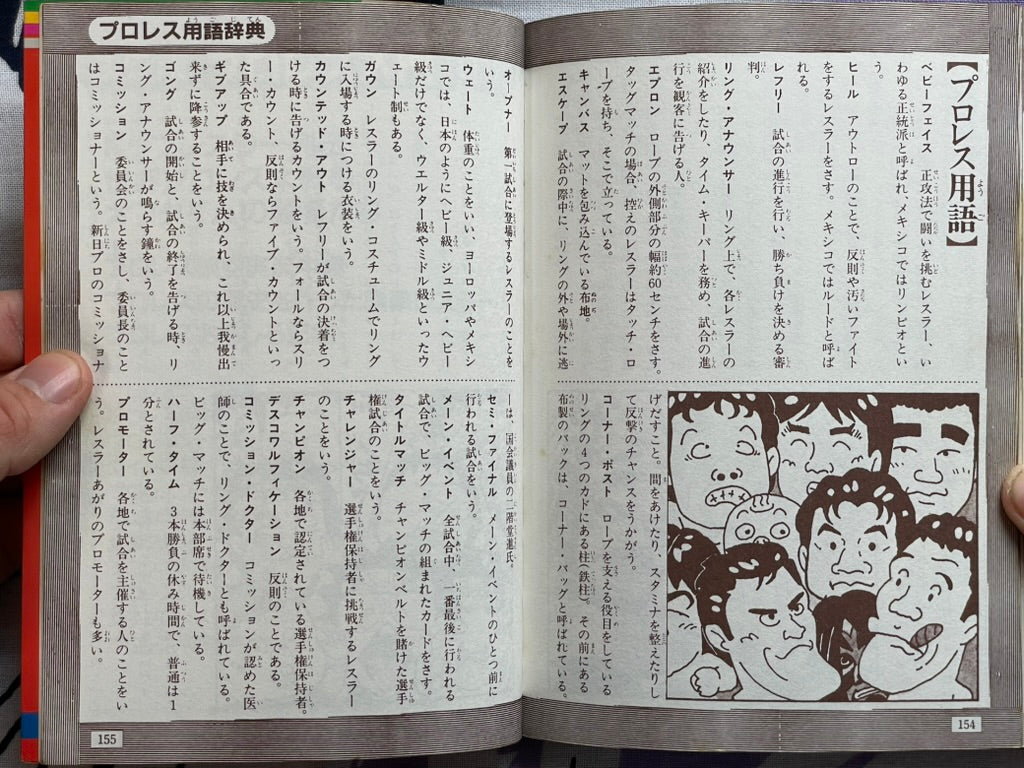 プロレス用語辞典
【プロレス用語】
ベビーフェイス　正攻法で闘いを挑むレスラー、い
わゆる正統派と呼ばれ、メキシコではリンピオとい
う。
ヒール　アウトローのことで、反則や汚いファイト
をするレスラーをさす。メキシコではルードと呼ば
れる。
レフリー　試合の進行を行い、勝ち負けを決める審
判。
リング・アナウンサー　リング上で、各レスラーの
紹介をしたり、タイム・キーパーを務め、試合の進
行を観客に告げる人。
エプロン　ロープの外側部分の幅約60センチをさす。
タッグマッチの場合、控えのレスラーはタッチ・ロ
ープを持ち、そこで立っている。
キャンバス　マットを包み込んでいる布地。
エスケープ　試合の際中に、リングの外や場外に逃
げだすこと。間をあけたり、スタミナを整えたりし
て反撃のチャンスをうかがう。
コーナー・ポスト　ロープを支える役目をしている
リングの4つのカドにある柱(鉄柱)。その前にある
布製のバックは、コーナー・バッグと呼ばれている。
154
オープナー　第一試合に登場するレスラーのことを
いう。
ウェート　体重のことをいい、ヨーロッパやメキシ
コでは、日本のようにヘビー級、ジュニア・ヘビー
級だけでなく、ウエルター級やミドル級といったウ
ェート制もある。
ガウン　レスラーのリング・コスチュームでリング
に入場する時につける衣装をいう。
カウンテッド・アウト　レフリーが試合の決着をつ
ける時に告げるカウントをいう。フォールならスリ
ー・カウント、反則ならファイブ・カウントといっ
た具合である。
ギブアップ　相手に技を決められ、これ以上我慢出
来ずに降参することをいう。
ゴング　試合の開始と、試合の終了を告げる時、リ
ング・アナウンサーが鳴らす鐘をいう。
コミッション　委員会のことをさし、委員長のこと
はコミッショナーという。新日プロのコミッショナ
ーは、国会議員の二階堂進氏。
セミ・ファイナル　メーン・イベントのひとつ前に
行われる試合をいう。
メーン・イベント　全試合中、一番最後に行われる
試合で、ビッグ・マッチの組まれたカードをさす。
タイトルマッチ　チャンピオンベルトを賭けた選手
権試合のことをいう。
チャレンジャー　選手権保持者に挑戦するレスラー
のことをいう。
チャンピオン　各地で認定されている選手権保持者。
デスコワルフィケーション　反則のことである。
コミッション・ドクター　コミッションが認めた医
師のことで、リング・ドクターとも呼ばれている。
ビッグ・マッチには本部席で待機している。
ハーフ・タイム　3本勝負の休み時間で、普通は1
分とされている。
プロモーター　各地で試合を主催する人のことをい
う。レスラーあがりのプロモーターも多い。
155